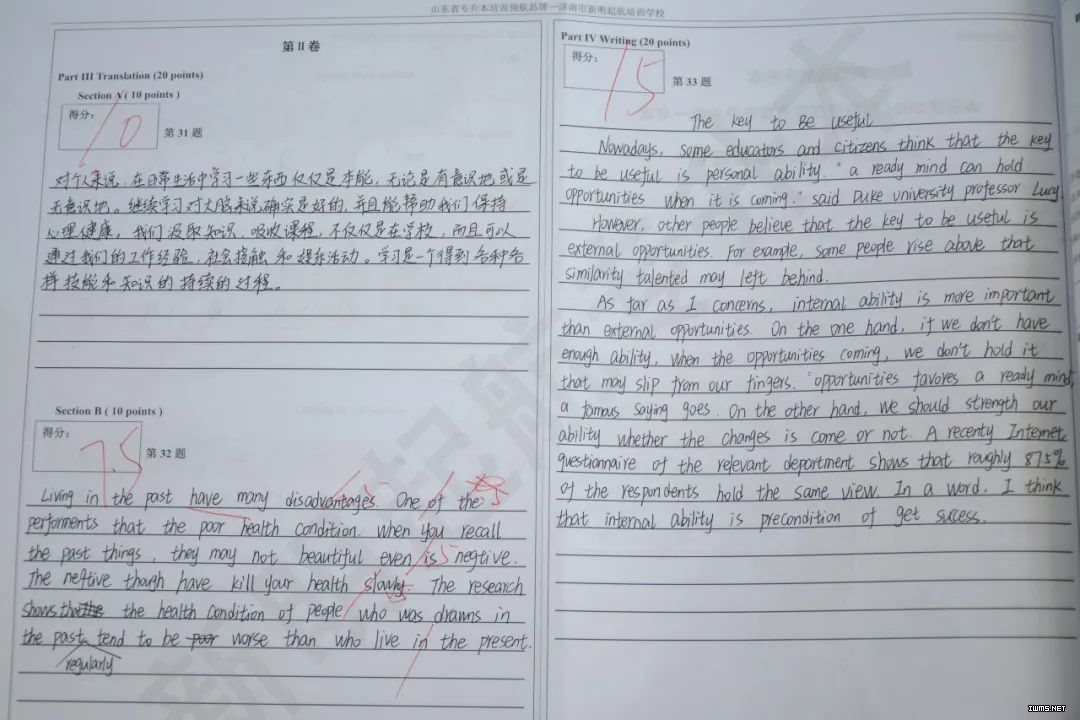 山东省专升本培训领航品牌—济南市新明起航培训学校
第 II 卷
Part III Translation (20 points)
Section A ( 10 points )
得分：
10
第 31 题
对个人来说，在日常生活中学习一些东西仅仅是本能，无论是有意识地或是
无意识地。继续学习对大脑来说确实是好的，并且能帮助我们保持
心理健康，我们汲取知识，吸收课程，不仅仅是在学校，而且可以
通过我们的工作经验，社会接触和娱乐活动。学习是一个得到各种各
样技能和知识的持续的过程。
Section B ( 10 points )
得分：
7.5
第 32 题
Living in the past have many disadvantages. One of the
performents that the poor health condition. When you recall
the past things, they may not beautiful even is negtive.
The negtive though have kill your health slowly. The research
shows that the health condition of people who was drawns in
the past tend to be poor worse than who live in the present.
regularly
Part IV Writing (20 points)
得分：
15
第 33 题
The key to Be useful
Nowadays, some educators and citizens think that the key
to be useful is personal ability. "a ready mind can hold
opportunities when it is coming." said Duke university professor Lucy.
However, other people believe that the key to be useful is
external opportunities. For example, some people rise above that
similarity talented may left behind.
As far as I concerns, internal ability is more important
than external opportunities. On the one hand, if we don't have
enough ability, when the opportunities coming, we don't hold it
that may slip from our fingers. "opportunities favores a ready mind",
a famous saying goes. On the other hand, we should strength our
ability whether the changes is come or not. A recenty Internet
questionnaire of the relevant department shows that roughly 87.5%
of the respondents hold the same view. In a word, I think
that internal ability is precondition of get success.
IWMS.NET